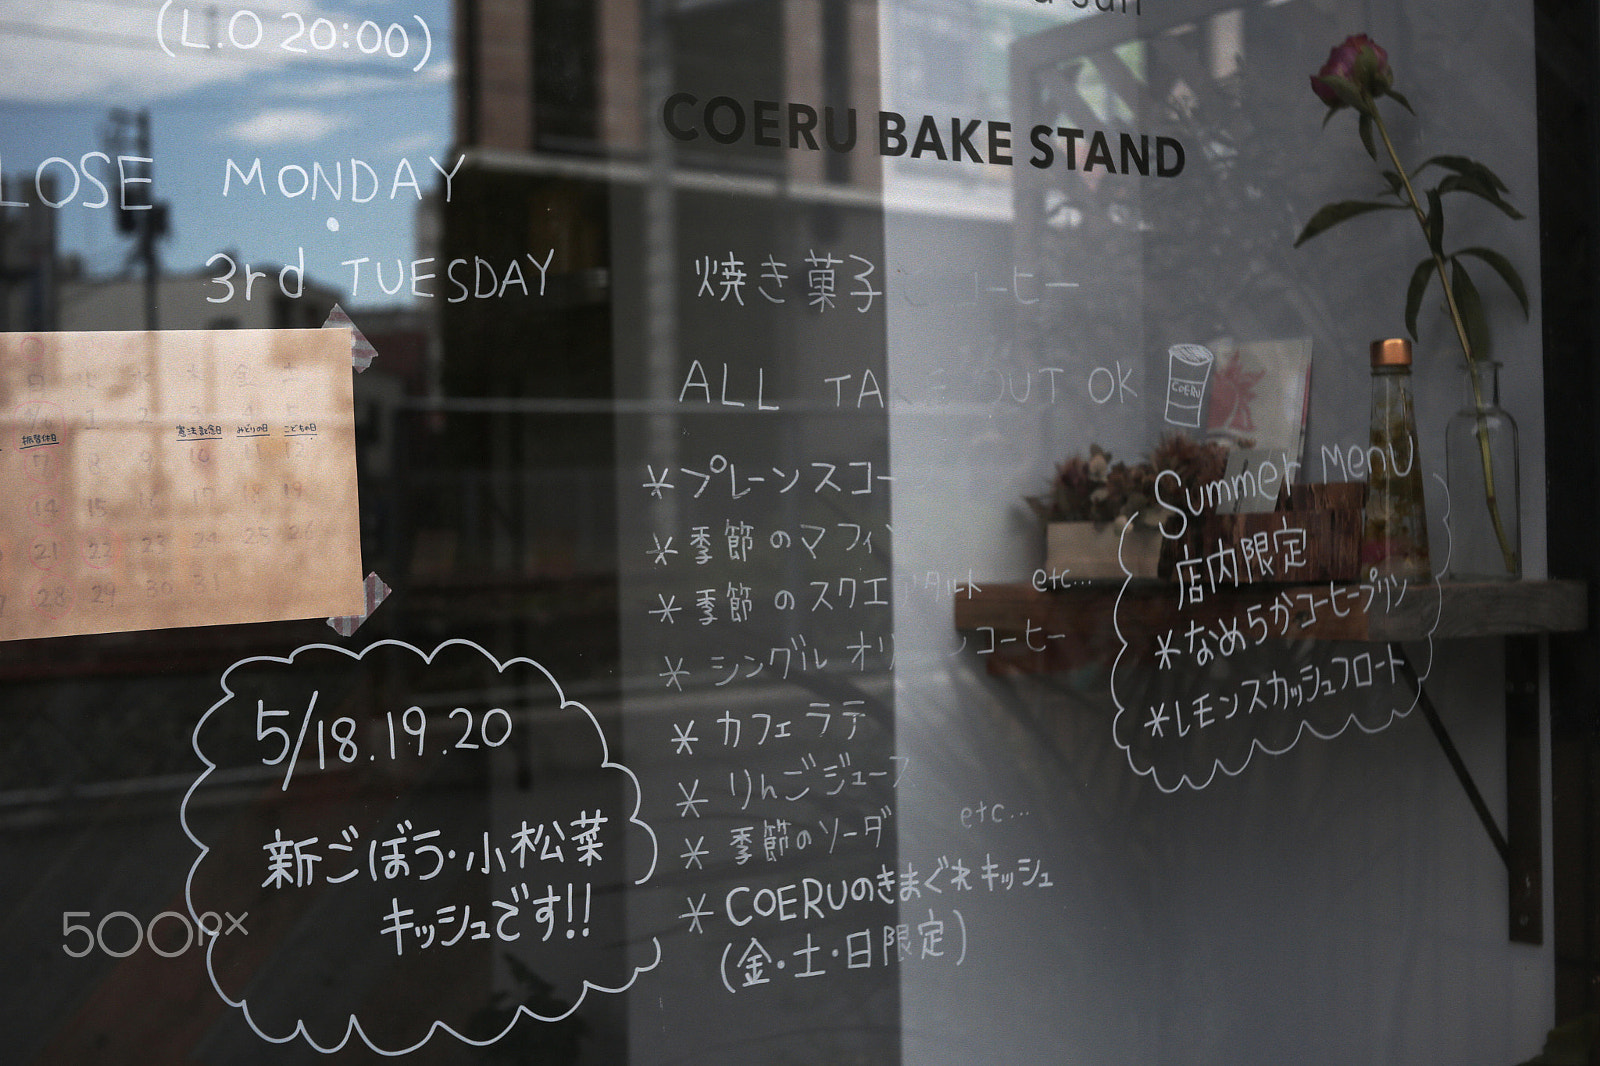 (L.O 20:00)
LOSE MONDAY
・
3rd TUESDAY
日 金 土
1 2 3 4 5
振替休日 憲法記念日 みどりの日 こどもの日
7 8 9 10 11 12
14 15 16 17 18 19
21 22 23 24 25 26
28 29 30 31
5/18.19.20
新ごぼう・小松菜
キッシュです!!
sun
COERU BAKE STAND
焼き菓子とコーヒー
ALL TAKE OUT OK
COERU
*プレーンスコー
*季節のマフィン
*季節のスクエアタルト etc...
*シングルオリジンコーヒー
*カフェラテ
*りんごジュース
*季節のソーダ etc...
*COERUのきまぐれキッシュ
(金・土・日限定)
Summer Menu
店内限定
*なめらかコーヒープリン
*レモンスカッシュフロート
500px